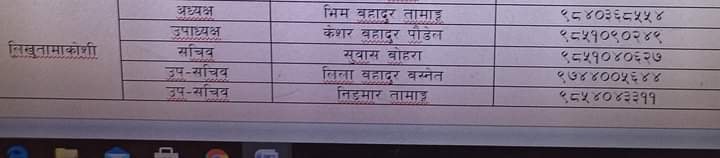 अध्यक्ष भिम बहादुर तामाङ्ग ९८४०३६८५५४
उपाध्यक्ष केशर बहादुर पौडेल ९८५१०९०२४९
लिखुतामाकोशी सचिव सुवास बोहरा ९८५१०४०६२७
उप-सचिव लिला बहादुर बस्नेत ९७४४००५६४४
उप-सचिव निडमार तामाङ्ग ९८५४०४३३११